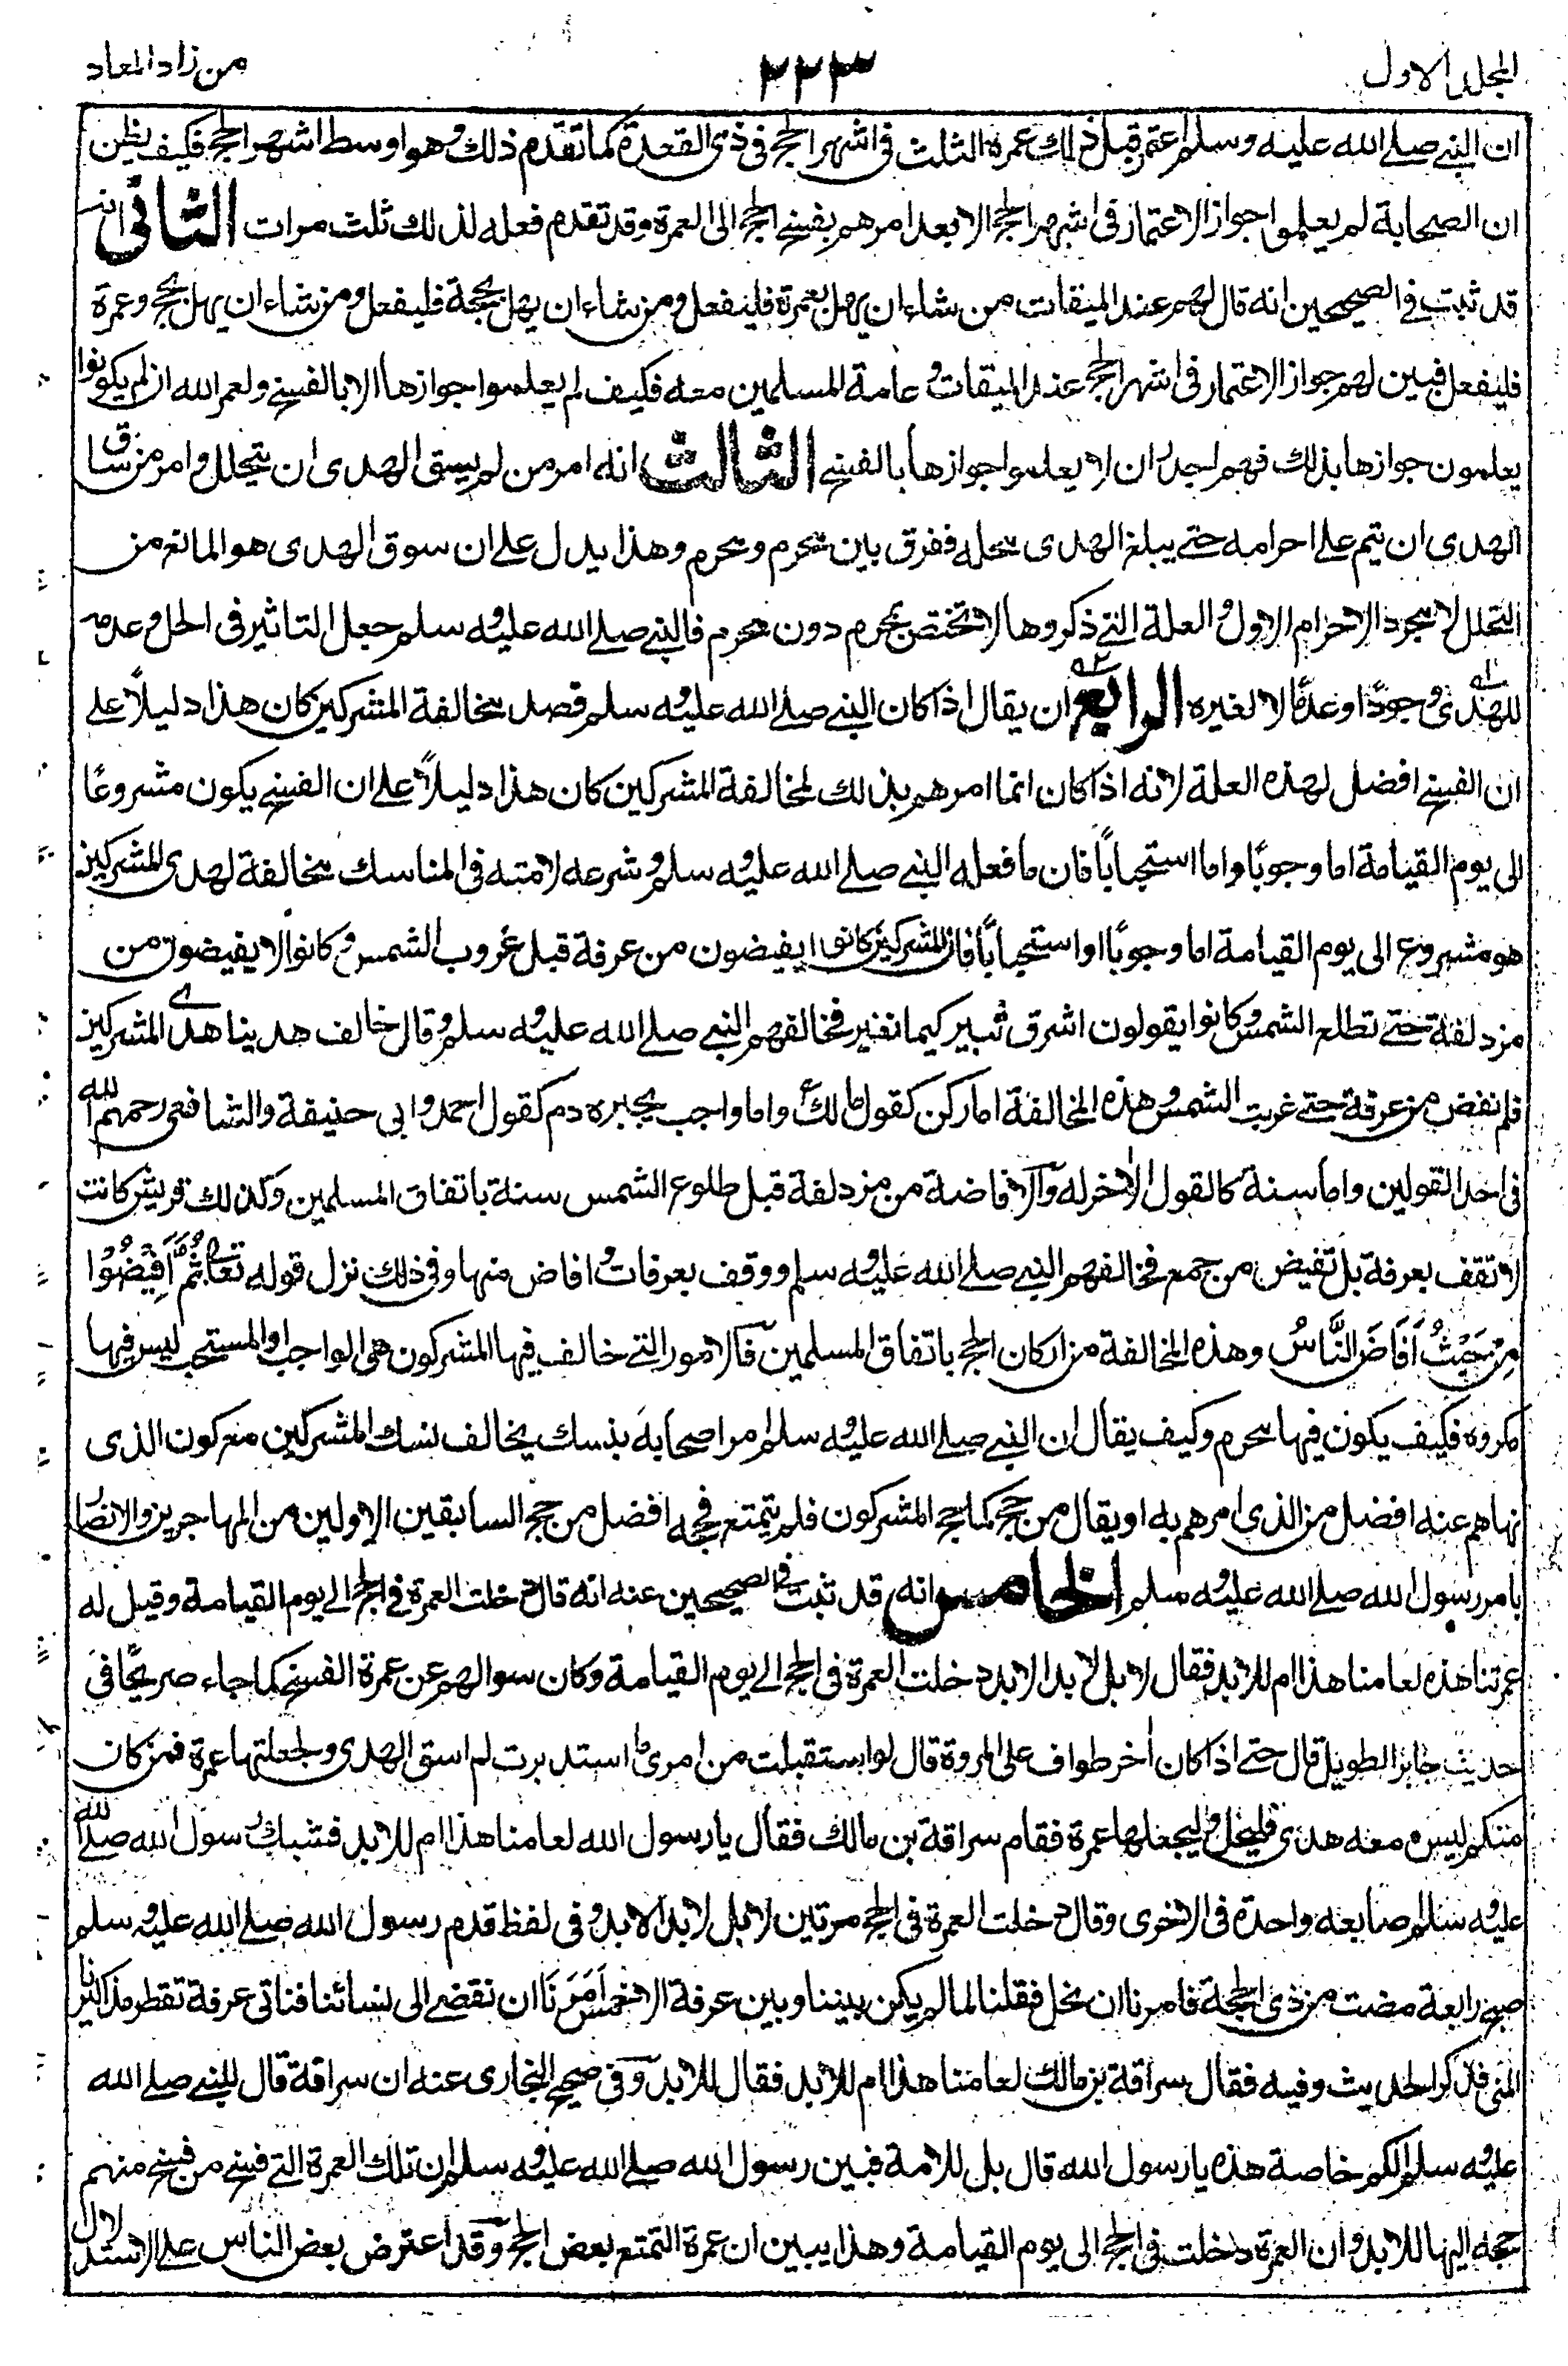 المجلد الاول ٢٢٣ من زاد المعاد
ان النبي صلے الله عليه وسلم اعتمر قبل ذلك عمرة الثلث في اشهر الحج في ذي القعدة كما تقدم ذلك وهو اوسط اشهر الحج فكيف يظن
ان الصحابة لم يعلموا جواز الاعتمار في اشهر الحج الا بعد امرهم بفسخ الحج الى العمرة وقد تقدم فعله لذلك ثلث مرات الثاني انه
قد ثبت في الصحيحين انه قال لهم عند الميقات من شاء ان يهل بعمرة فليفعل ومن شاء ان يهل بحجة فليفعل ومن شاء ان يهل بحج وعمرة
فليفعل فبين لهم جواز الاعتمار في اشهر الحج عند الميقات و عامة المسلمين معه فكيف لم يعلموا جوازها الا بالفسخ ولعمر الله ان لم يكونوا
يعلمون جوازها بذلك فهم اجدر ان لا يعلموا جوازها بالفسخ الثالث انه امر من لم يسق الهدى ان يتحلل وامر من ساق
الهدى ان يتم على احرامه حتے يبلغ الهدى محله ففرق بين محرم ومحرم وهذا يدل على ان سوق الهدى هو المانع من
التحلل لا مجرد الاحرام الاول و العلة التي ذكروها لا تختص بمحرم دون محرم فالنبي صلے الله عليه وسلم جعل التاثير في الحل وعدمه
للهدى وجودًا وعدمًا لا لغيره الرابع ان يقال اذا كان النبي صلے الله عليه وسلم قصد مخالفة المشركين كان هذا دليلاً على
ان الفسخ افضل لهذه العلة لانه اذا كان انما امرهم بذلك لمخالفة المشركين كان هذا دليلاً على ان الفسخ يكون مشروعًا
الى يوم القيامة اما وجوبًا واما استحبابًا فان ما فعله النبي صلے الله عليه وسلم و شرعه لامته في المناسك مخالفة لهدى المشركين
هو مشروع الى يوم القيامة اما وجوبًا او استحبابًا فان المشركين كانوا يفيضون من عرفة قبل غروب الشمس و كانوا لا يفيضون من
مزدلفة حتے تطلع الشمس و كانوا يقولون اشرق ثبير كيما نغير فخالفهم النبي صلے الله عليه وسلم و قال خالف هدينا هدى المشركين
فلم نفض من عرفة حتے غربت الشمس و هذه المخالفة اما ركن كقول مالك واما واجب يجبره دم كقول احمد وابي حنيفة والشافعي رحمهم الله
في احد القولين واما سنة كالقول الاخر له و الافاضة من مزدلفة قبل طلوع الشمس سنة باتفاق المسلمين وكذلك قريش كانت
لا تقف بعرفة بل تفيض من جمع فخالفهم النبي صلے الله عليه وسلم ووقف بعرفات و افاض منها وفي ذلك نزل قوله تعالى ثُمَّ اَفِيْضُوْا
مِنْ حَيْثُ اَفَاضَ النَّاسُ وهذه المخالفة من اركان الحج باتفاق المسلمين فالامور التي خالف فيها المشركون هي الواجب او المستحب ليس فيها
مكروه فكيف يكون فيها محرم وكيف يقال ان النبي صلے الله عليه وسلم امر اصحابه بنسك يخالف نسك المشركين مع كون الذى
نهاهم عنه افضل من الذى امرهم به او يقال من حج كما حج المشركون فلم يتمتع فحجه افضل من حج السابقين الاولين من المهاجرين والانصار
بامر رسول الله صلے الله عليه وسلم الخامس انه قد ثبت في الصحيحين عنه انه قال دخلت العمرة في الحج الى يوم القيامة وقيل له
عمرتنا هذه لعامنا هذا ام للابد فقال لا بل لابد الابد دخلت العمرة في الحج الى يوم القيامة وكان سوالهم عن عمرة الفسخ كما جاء صريحًا في
حديث جابر الطويل قال حتے اذا كان اٰخر طواف على المروة قال لو استقبلت من امرى ما استدبرت لم اسق الهدى ولجعلتها عمرة فمن كان
منكم ليس معه هدى فليحل و ليجعلها عمرة فقام سراقة بن مالك فقال يا رسول الله لعامنا هذا ام للابد فشبك رسول الله صلى الله
عليه وسلم اصابعه واحدة في الاخرى وقال دخلت العمرة في الحج مرتين لا بل لابد الابد و في لفظ قدم رسول الله صلے الله عليه وسلم
صبح رابعة مضت من ذي الحجة فامرنا ان نحل فقلنا لما لم يكن بيننا وبين عرفة الا خمس اَمَرَنَا ان نقضے الى نسائنا فناتي عرفة تقطر مذاكيرنا
المني فذكر الحديث وفيه فقال سراقة بن مالك لعامنا هذا ام للابد فقال للابد و في صحيح البخارى عنه ان سراقة قال للنبي صلے الله
عليه وسلم الكم خاصة هذه يا رسول الله قال بل للامة فبين رسول الله صلے الله عليه وسلم ان تلك العمرة التي فسخ من فسخ منهم
حجه اليها للابد وان العمرة دخلت في الحج الى يوم القيامة وهذا يبين ان عمرة التمتع بعض الحج وقد اعترض بعض الناس على الاستدلال